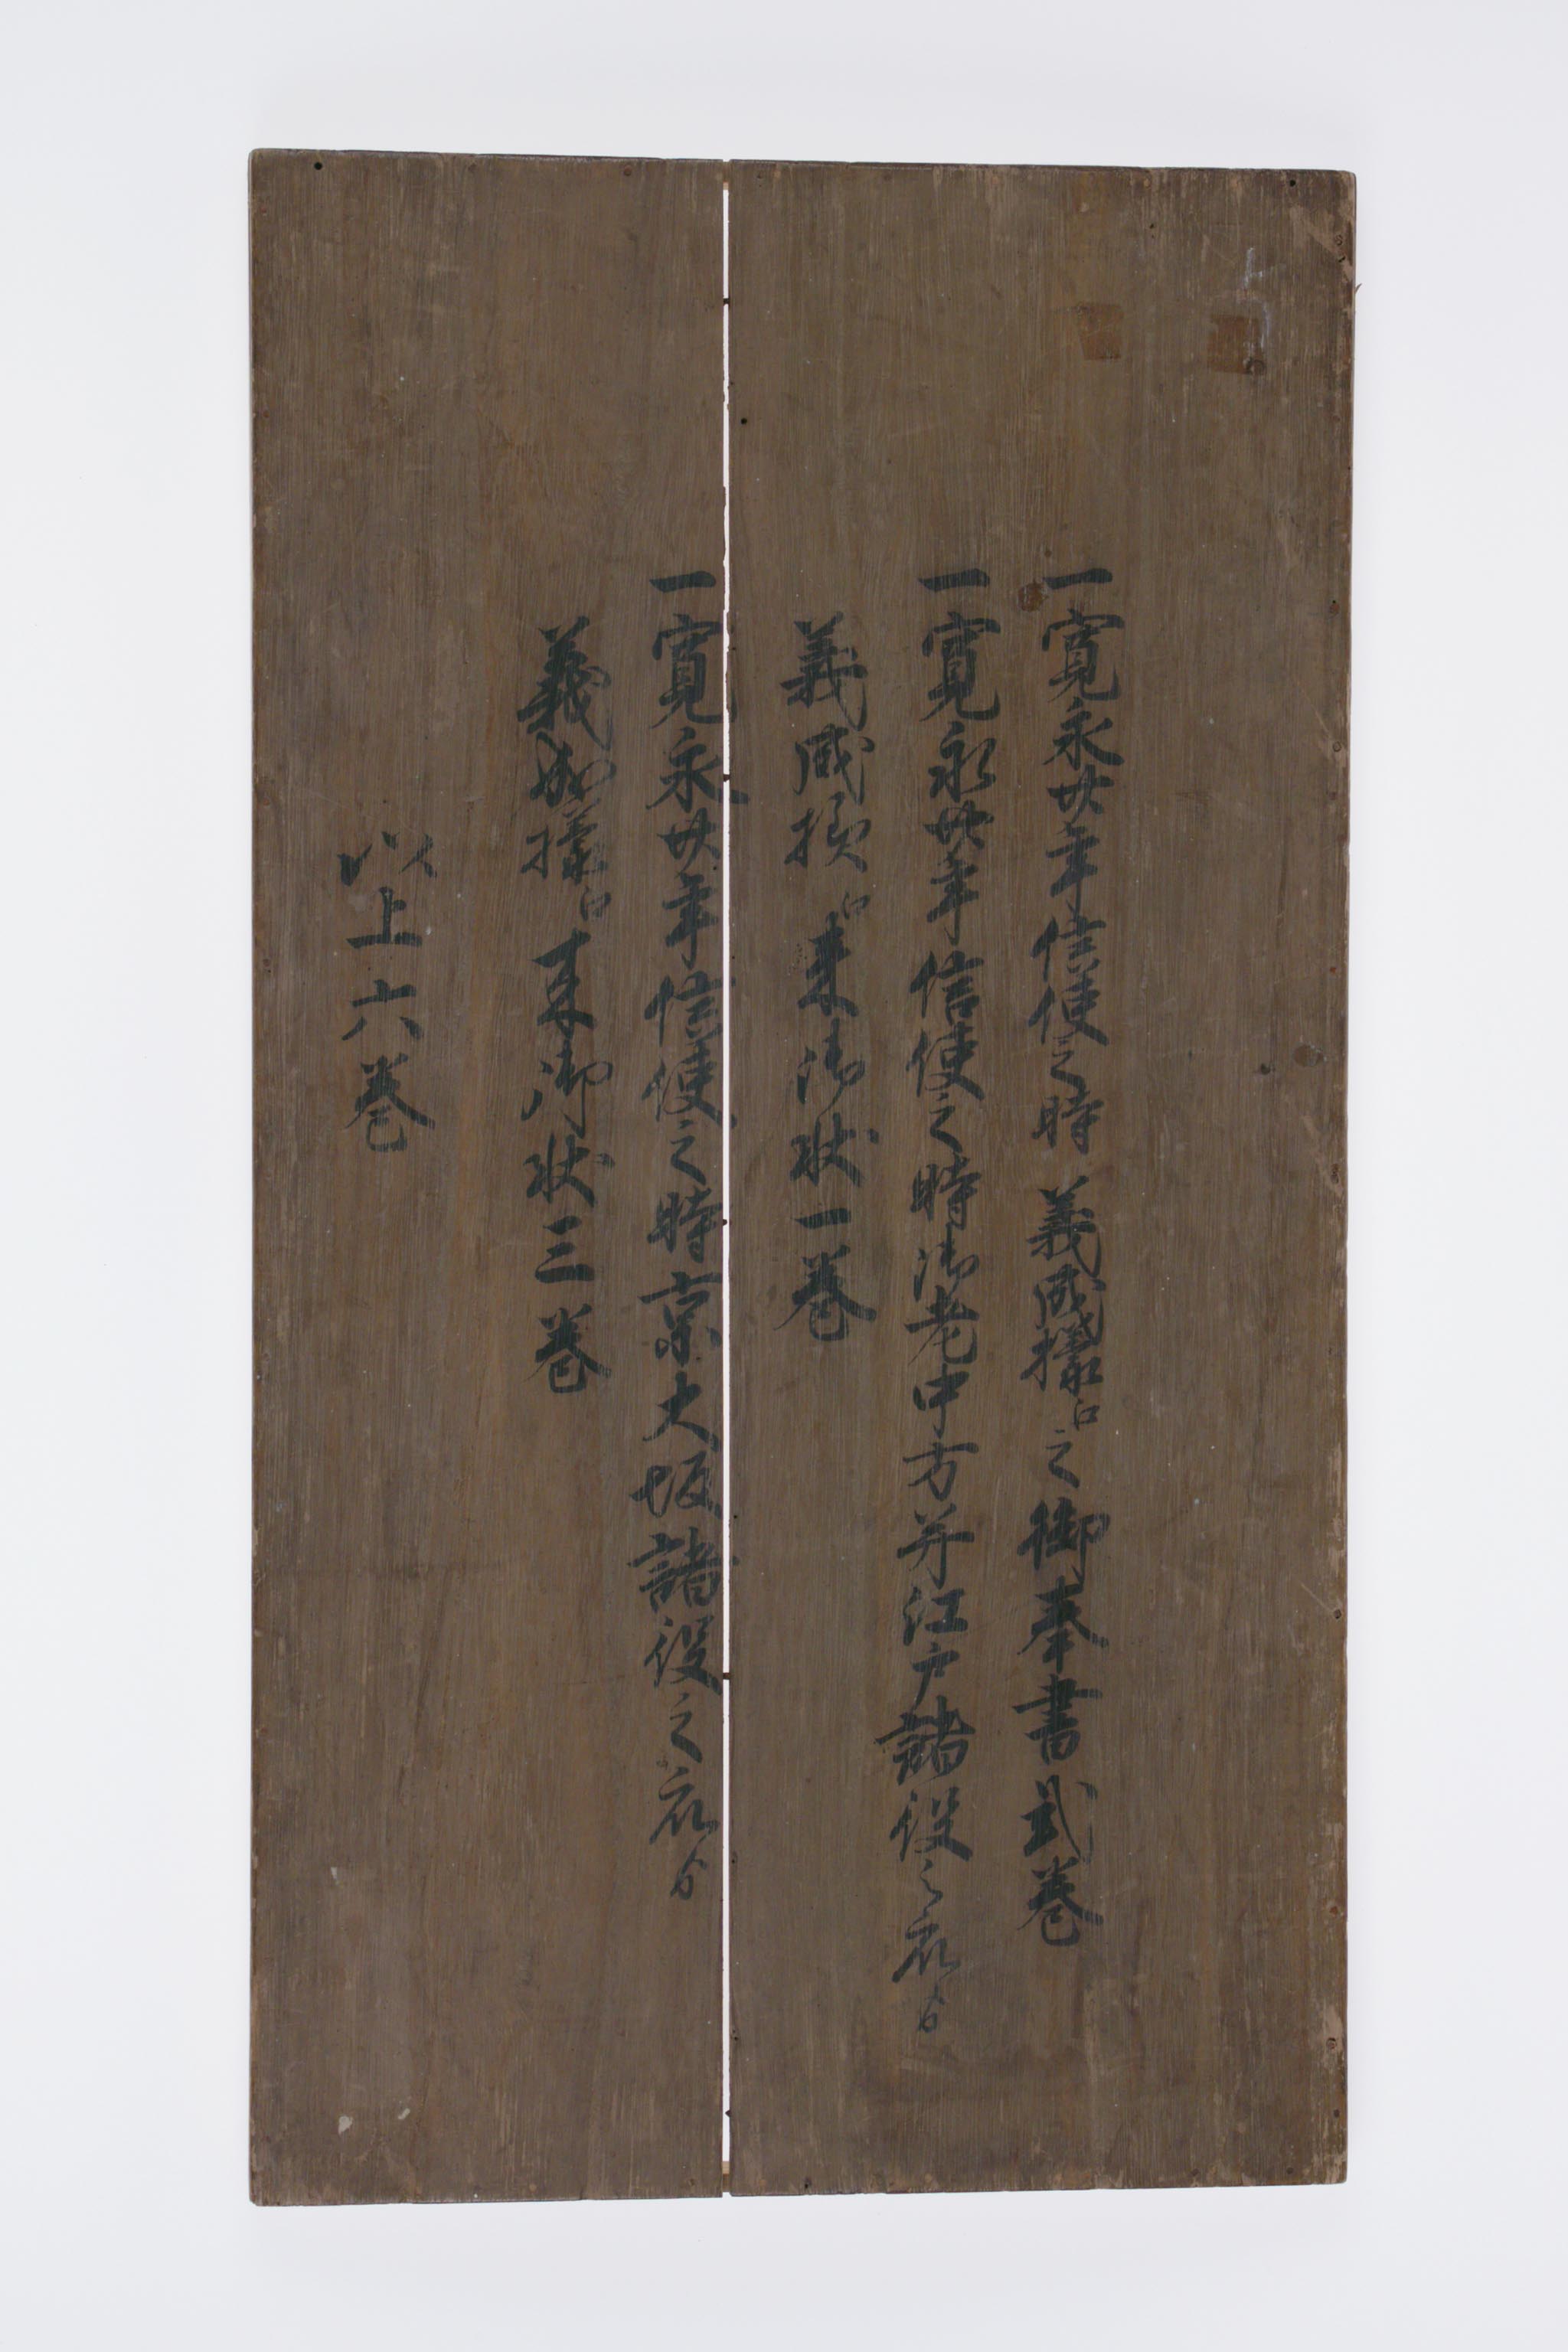 一寛永廿年信使之時 義成様江之御奉書弐巻
一寛永廿年信使之時御老中方并江戸諸役之衆ゟ
義成様江来御状一巻
一寛永廿年信使之時京大坂諸役之衆ゟ
義成様江来御状三巻
以上六巻